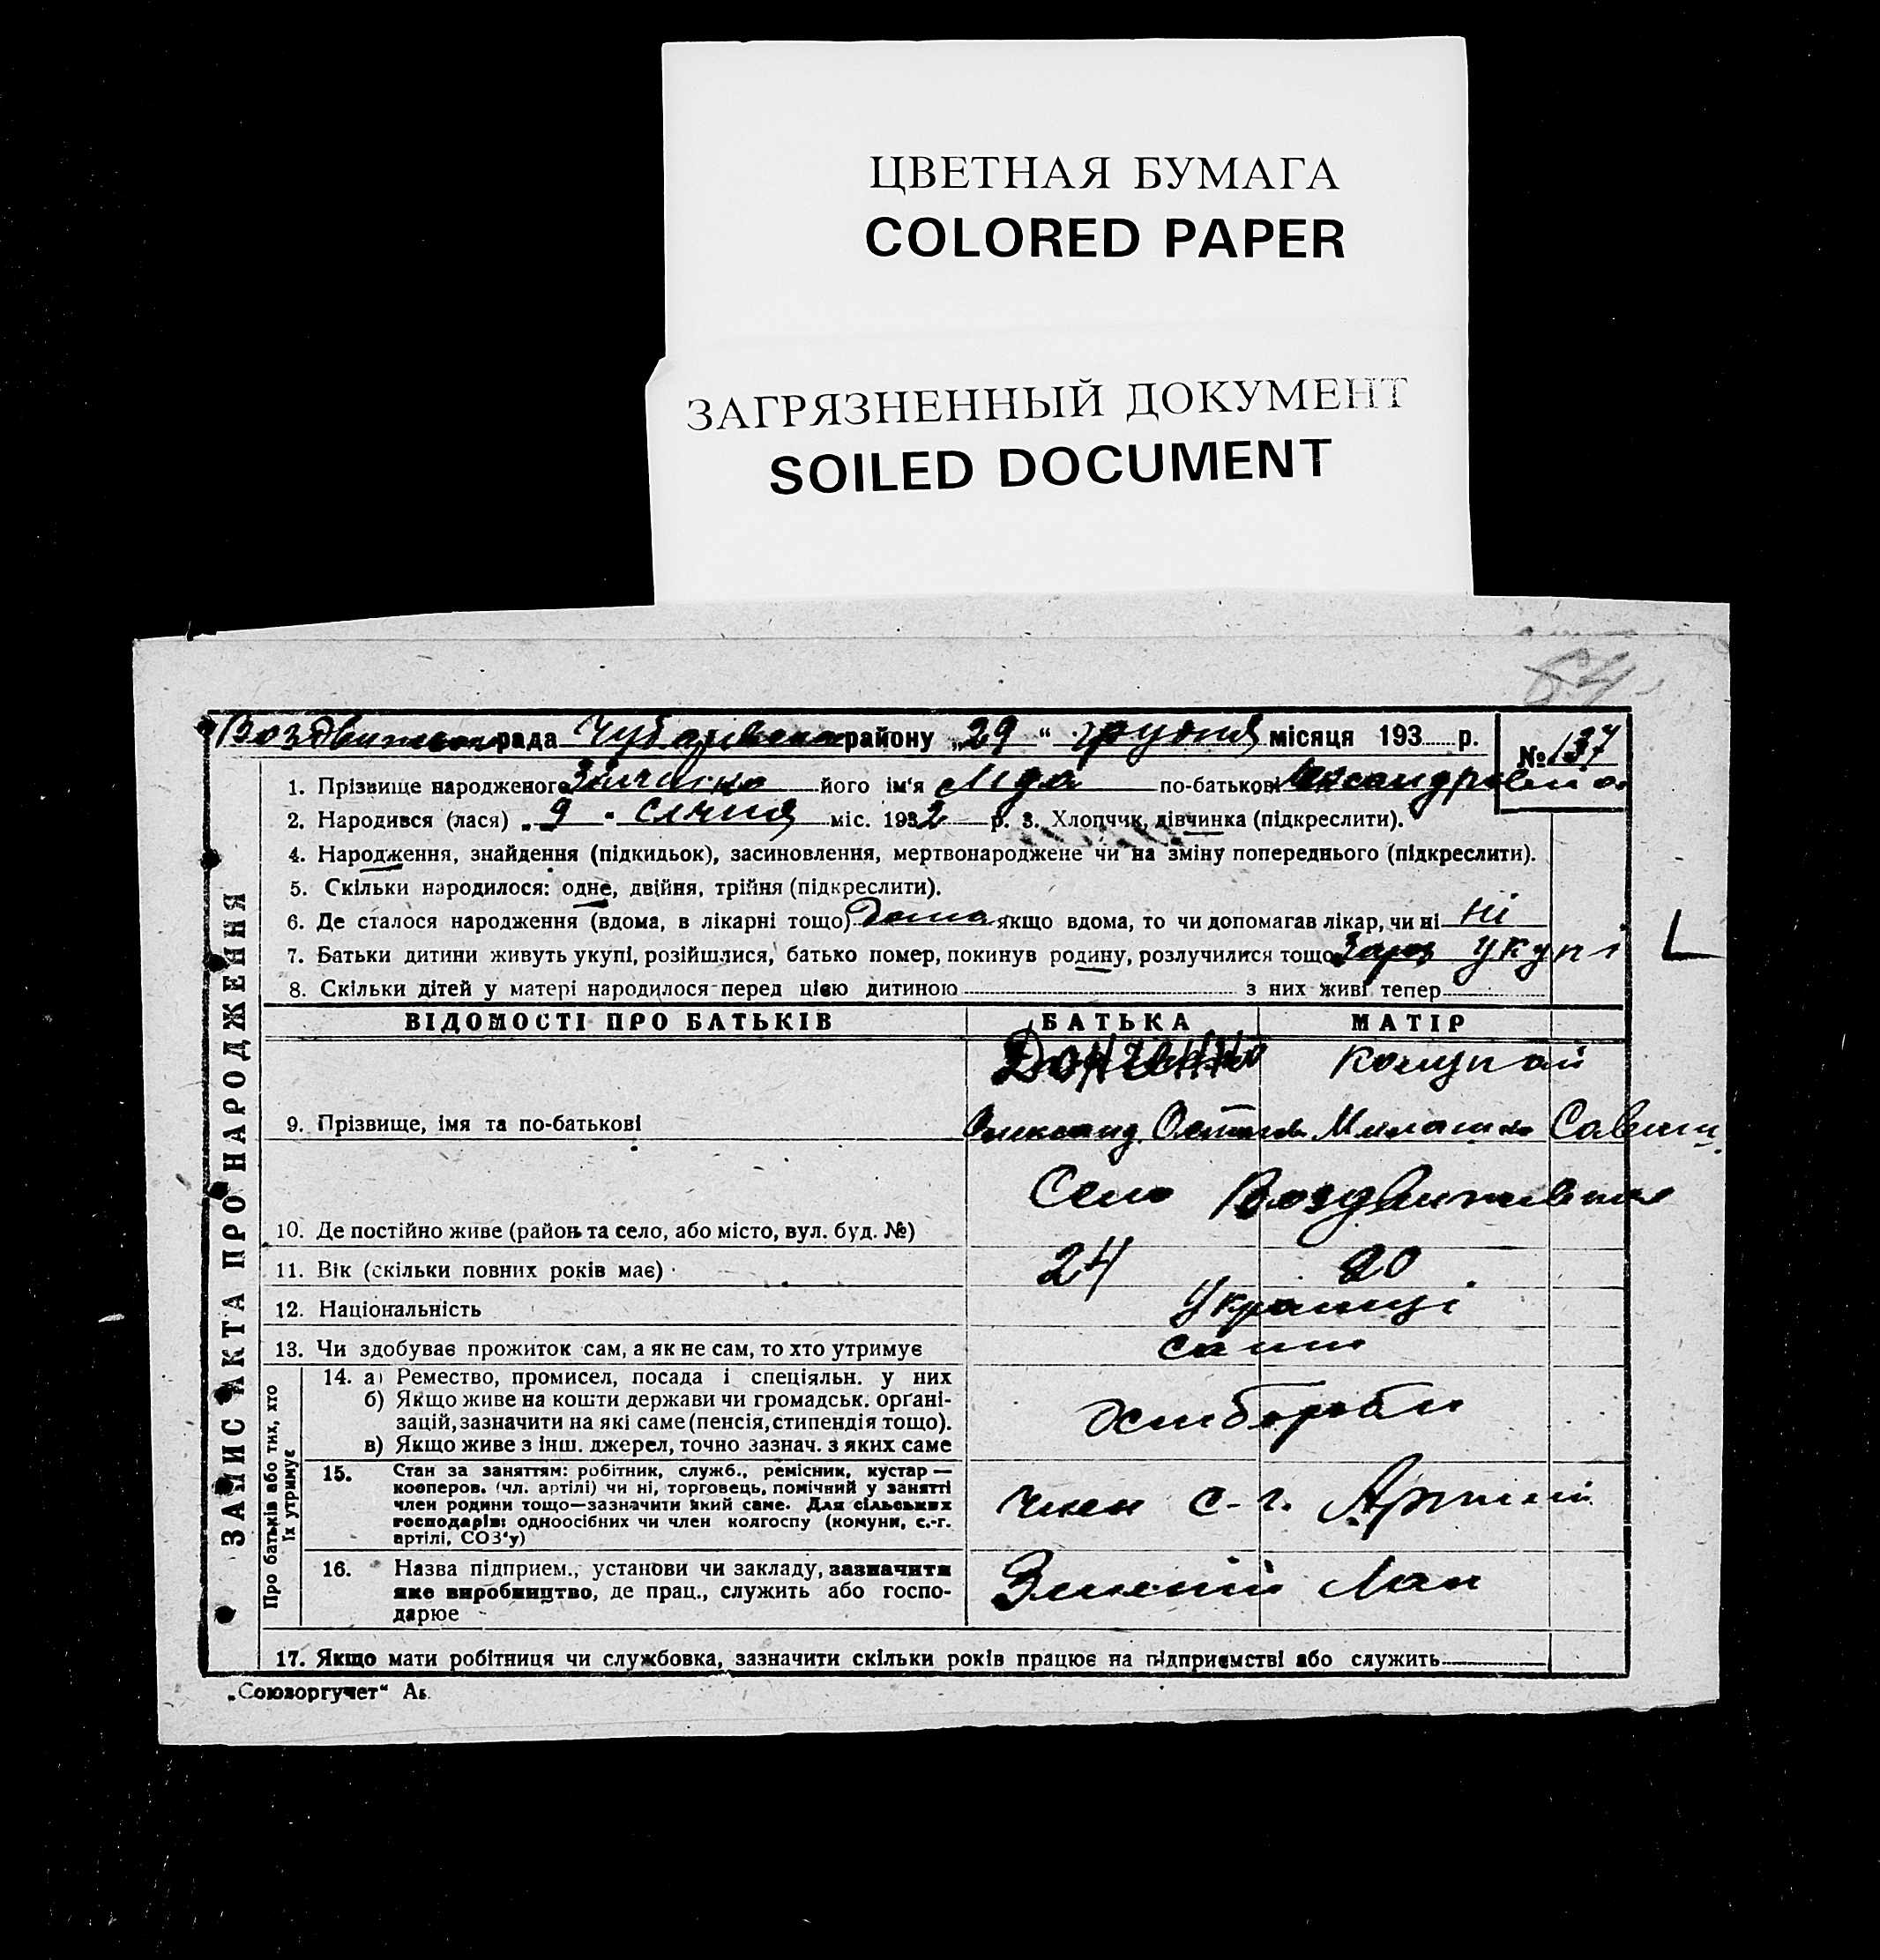 ЦВЕТНАЯ БУМАГА
COLORED PAPER
ЗАГРЯЗНЕННЫЙ ДОКУМЕНТ
SOILED DOCUMENT
рада района району „29 “ грудня місяця 193 р.
№ 137
1. Прізвище народженого його ім'я Лида по-батькові
2. Народився (лася) „ 9 " січня міс. 1932 р. 3. Хлопчик, дівчинка (підкреслити).
4. Народження, знайдення (підкидьок), засиновлення, мертвонароджене чи на зміну попереднього (підкреслити).
5. Скільки народилося: одне, двійня, трійня (підкреслити).
6. Де сталося народження (вдома, в лікарні тощо) якщо вдома, то чи допомагав лікар, чи ні Ні
7. Батьки дитини живуть укупі, розійшлися, батько помер, покинув родину, розлучилися тощо укупі
8. Скільки дітей у матері народилося перед цією дитиною з них живі тепер
ЗАПИС АКТА ПРО НАРОДЖЕННЯ
ВІДОМОСТІ ПРО БАТЬКІВ БАТЬКА МАТІР
9. Прізвище, імя та по-батькові
Село
10. Де постійно живе (район та село, або місто, вул. буд. №)
11. Вік (скільки повних років має) 24 20
12. Національність Українці
13. Чи здобуває прожиток сам, а як не сам, то хто утримує сами
Про батьків або тих, хто
їх утримує
14. а) Ремество, промисел, посада і спеціяльн. у них
б) Якщо живе на кошти держави чи громадськ. органі-
зацій, зазначити на які саме (пенсія, стипендія тощо).
в) Якщо живе з інш. джерел, точно зазнач. з яких саме
Хлибороби
15. Стан за заняттям: робітник, служб., ремісник, кустар —
кооперов. (чл. артілі) чи ні, торговець, помічний у занятті
член родини тощо—зазначити який саме. Для сільських
господарів: одноосібних чи член колгоспу (комуни, с.-г.
артілі, СОЗ'у)
Член С-г. Артілі
16. Назва підприєм., установи чи закладу, зазначити
яке виробництво, де прац., служить або госпо-
дарює
Лан
17. Якщо мати робітниця чи службовка, зазначити скільки років працює на підприємстві або служить
„Союзоргучет“